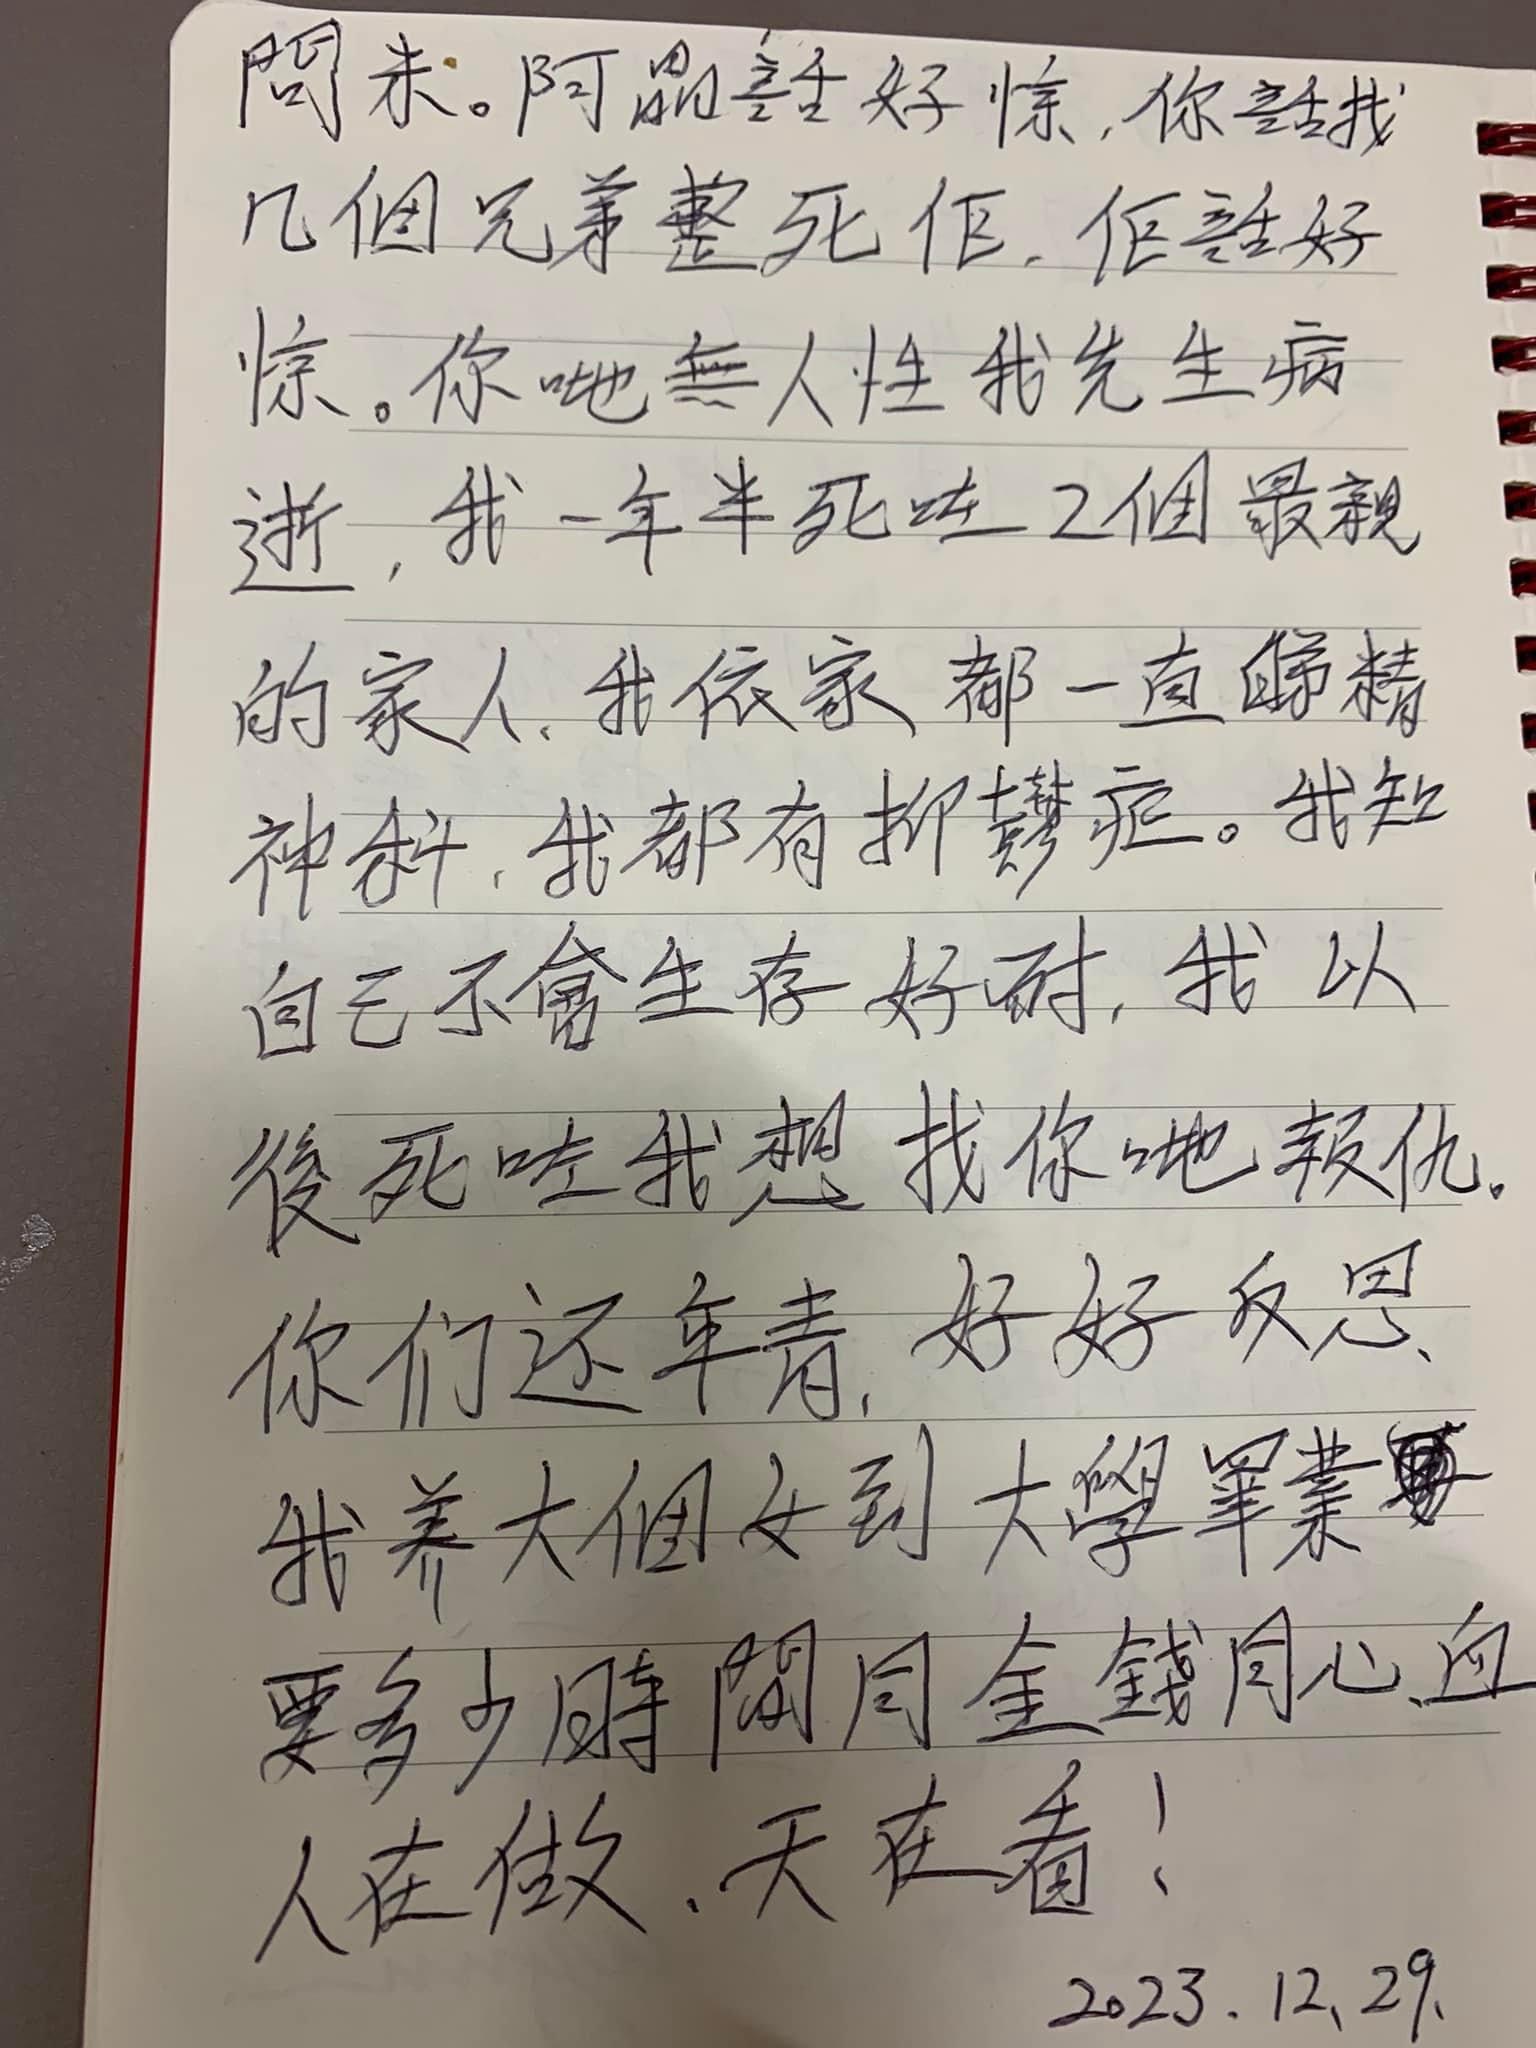 問未。阿晶話好惊,你話找
几個兄弟整死佢.佢話好
惊。你哋無人性我先生病
逝,我一年半死咗2個最親
的家人、我依家都一直睇精
神科,我都有抑鬱症。我知
自己不會生存好耐,我以
後死咗我想找你哋報仇。
你们还年青,好好反思、
我养大個女到大學畢業
要多少時間同金錢同心血
人在做、天在看!
2023.12.29.